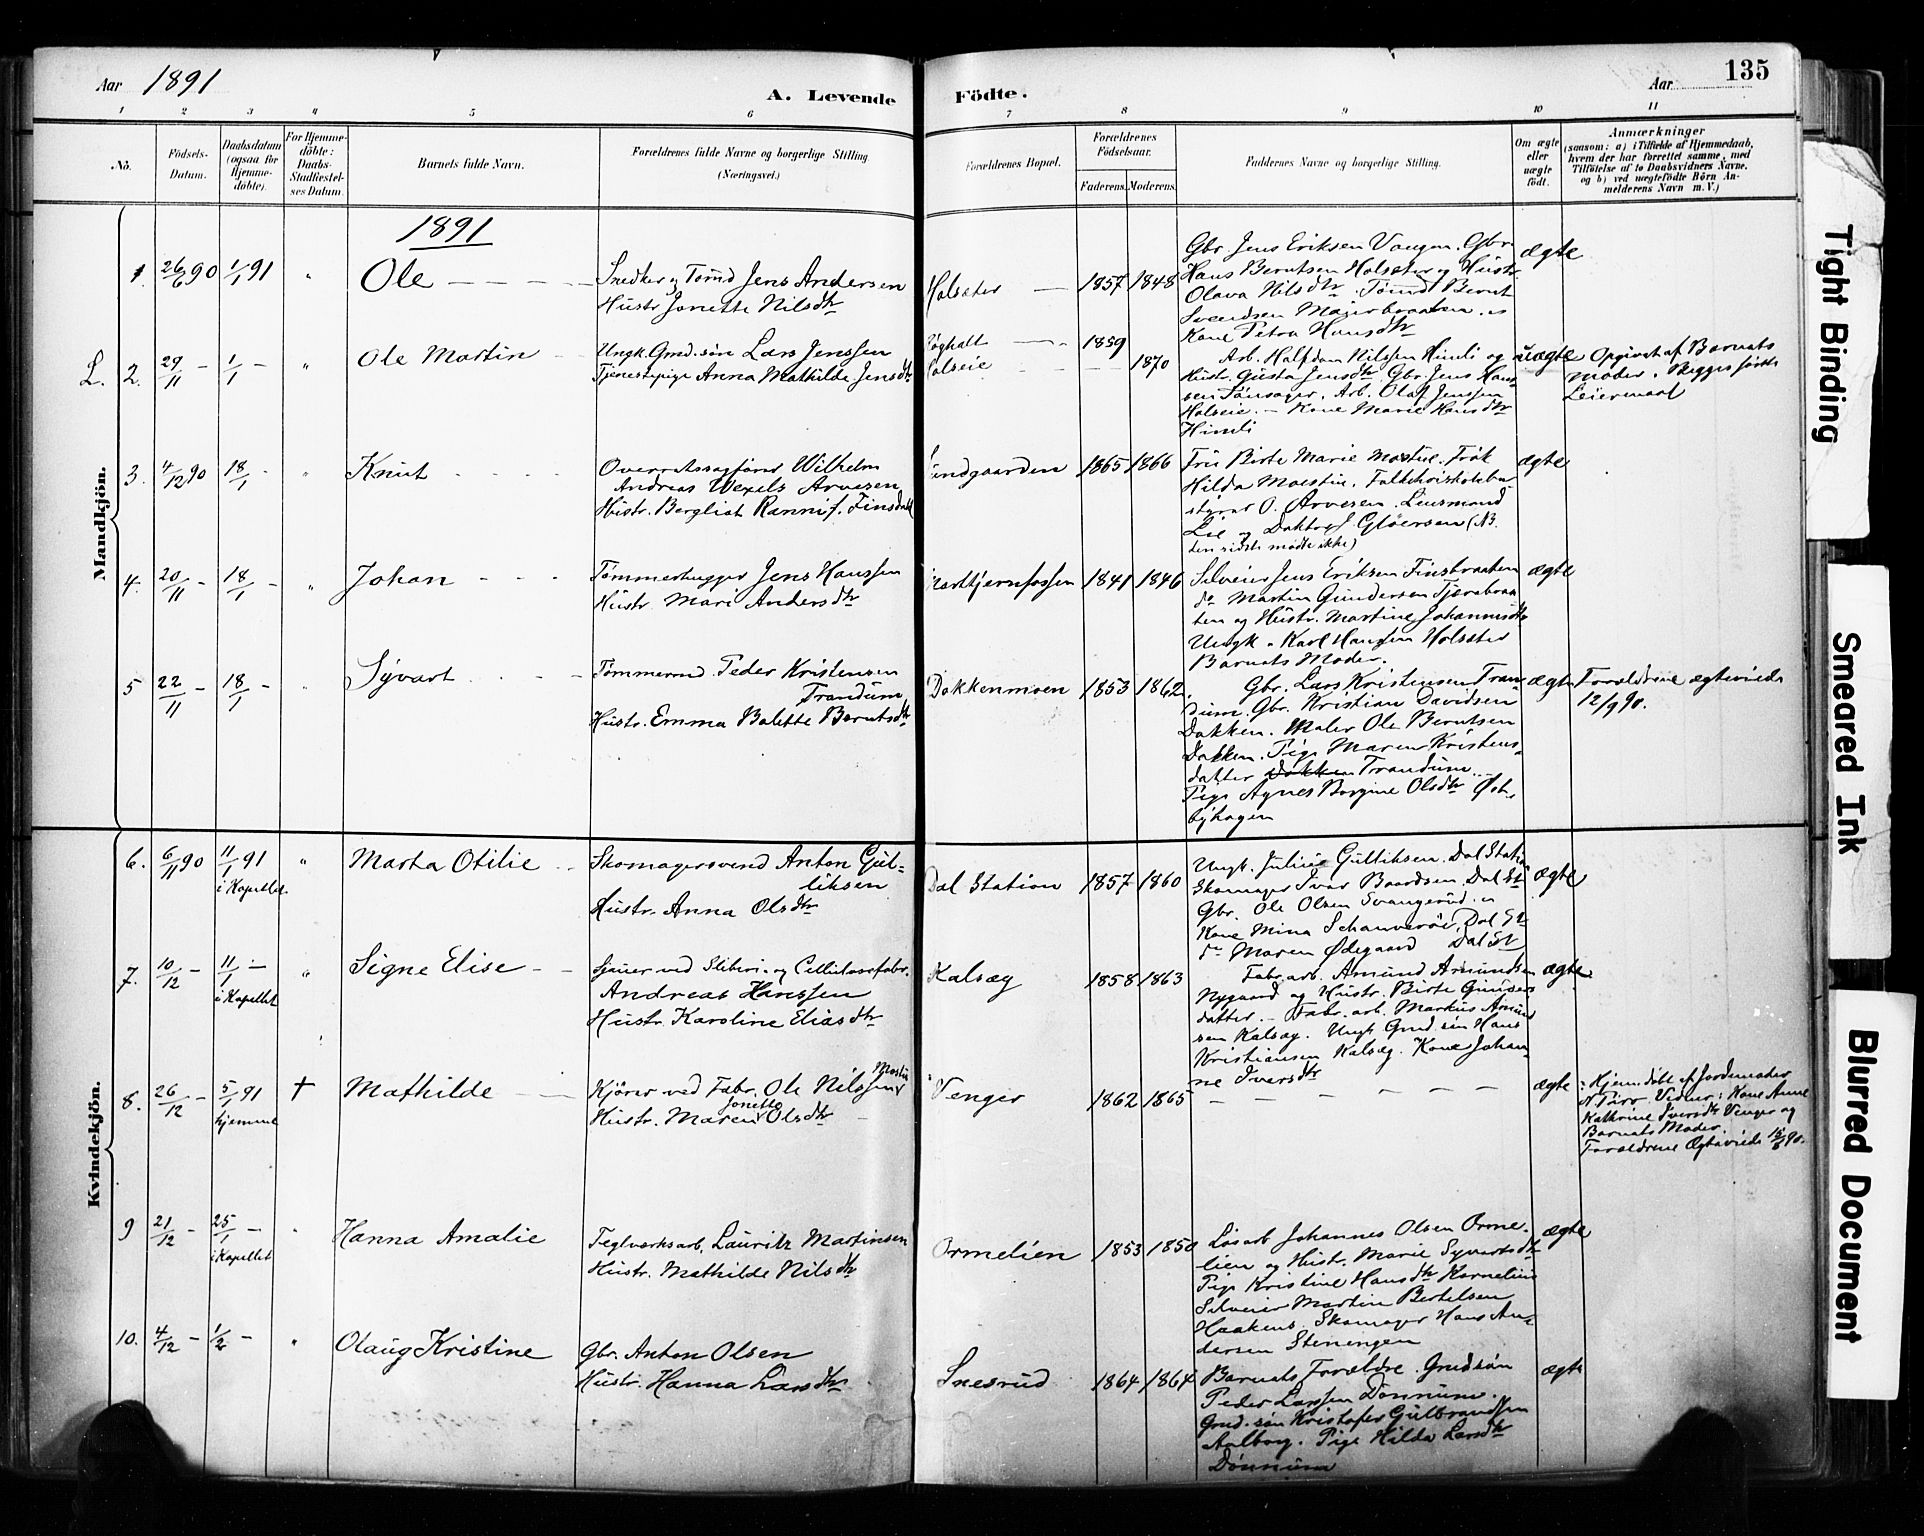 Aar 1891
A. Levende Födte.
Aar 135
1 2 3 4 5 6 7 8 9 10 11
No.
Födsels-Datum.
Daabsdatum (ogsaa for Hjemmedöbte).
For Hjemmedöbte: Daabs-Stadfæstelses Datum.
Barnets fulde Navn.
Forældrenes fulde Navne og borgerlige Stilling (Næringsvei.)
Forældrenes Bopæl.
Forældrenes Födselsaar.
Faderens. Moderens.
Faddernes Navne og borgerlige Stilling.
Om ægte eller uægte födt.
Anmærkninger
(saasom: a) i Tilfælde af Hjemmedaab,
hvem der har forrettet samme, med
Tilföielse af to Daabsvidners Navne.
og b) ved uægtefödte Börn An-
melderens Navn m. V.)
Mandkjön.
1891
1. 26/6 90 1/1 91 " Ole
Snedker og Tømd Jens Andersen
Hustr Jonette Nilsdtr
Holsæter 1857 1848
Gbr. Jens Eriksen Vangen. Gbr.
Hans Berntsen Holsæter og Hustr.
Olava Nilsdtr. Tømd Bernt
Svendsen
Kone Petra Hansdtr
ægte
L. 2. 29/11 - 1/1 - " Ole Martin
Ungk. Gmd.søn Lars Jenssen
Tjenestepige Anna Mathilde Jensdtr
1859
1870
Arb. Halfdan Nilsen Himli og
Hustr. Gusta Jensdtr. Gbr. Jens Han-
sen Tønsager. Arb. Olaf Jenssen
Holseie. - Kone Marie Hansdtr
Himli
uægte
Opgivet af Barnets
Moder. Begges første
Leiermaal
3. 4/12 90 18/1 - " Knut
Overretssagfører Wilhelm
Andreas Wexels Arvesen
Hustr. Bergliot Rannif. Finsdatt
Sundgaarden 1865 1866
Fru Birte Marie Moestue. Frøk
Hilda Moestue. Folkehøiskolebe-
styrer O. Arvesen. Lensmand
Lie og Doktor J. Gløersen (NB.
den sidste mødte ikke)
ægte
4. 20/11 - 18/1 - " Johan
Tømmerhugger Jens Hanssen
Hustr. Mari Andersdtr
1841 1846
Selveier Jens Eriksen Finstraaten
do Martin Gundersen Tjærebraa-
ten og Hustr. Martine Johannesdtr
Ungk. Karl Hansen Holsæter
Barnets Moder.
ægte
5 22/11 - 18/1 - " Syvert
Tømmermd Peder Kristensen
Trandum
Hustr. Emma Bolette Berntsdtr
Dokkenmoen 1853 1862
Gbr. Lars Kristensen Tran-
dum. Gbr. Kristian Davidsen
Dokken. Maler Ole Berntsen
Dokken. Pige Maren Kristens-
datter Dokken Trandum
Pige Agnes Borgine Olsdtr Øst-
byhagen
ægte
Forældrene ægteviede
12/9 90.
Kvindekjön.
6. 6/11 90 11/1 91 i Kapellet " Marta Otilie
Skomagersvend Anton Gul-
liksen
Hustr. Anna Olsdtr
Dal Station 1857 1860
Ungk. Julius Gulliksen. Dal Station
Skomager Ivar Baardsen. Dal St.
Gbr. Ole Olsen Svangerud. og
Kone Mina Dal St
do Maren Ødegaard Dal St
ægte
7. 10/12 - 11/1 - i Kapellet " Signe Elise
Sjauer ved Sliberi- og Cellulosefabr.
Andreas Hanssen
Hustr. Karoline Eliasdtr
Kalsæg 1858 1863
Fabr.arb. Amund Amundsen
Nygaard og Hustr. Birte Gunders-
datter. - Fabr. arb. Markus Amund-
sen Kalsæg. Ungk Gmd.søn Hans
Kristiansen Kalsæg. Kone Johan-
ne Iversdtr
ægte
8. 26/12 - 5/1 91 hjemme † Mathilde
Kjører ved Fabr. Ole Martin Nilssen
Hustr. Maren Jonette Olsdtr
Venger 1862 1865
ægte
Hjemdøbt af Jordemoder
N. Vidner: Kone Anne
Kathrine Iversdtr Venger og
Barnets Moder.
Forældrene Ægteviede 90.
9 21/12 - 25/1 - i Kapellet " Hanna Amalie
Teglværksarb. Lauritz Martinsen
Hustr. Mathilde Nilsdtr
Ormelien 1853 1850
Løsarb Johannes Olsen Orme-
lien og Hustr. Marie Syvertsdtr
Pige Kristine Hansdtr Kornelius
Selveier Martin Bertelsen
Haakens. Skomager Hans An-
dersen Steningen
ægte
10. 4/12 - 1/2 - " Olaug Kristine
Gbr. Anton Olsen
Hustr. Hanna Larsdtr
Snesrud 1864 1864
Barnets Forældre. Gmdsøn
Peder Larssen Dønnum.
Gmd.søn Kristofer Gulbrandsen
Aalborg. Pige Hilda Larsdtr
Dønnum
ægte
Tight Binding
Smeared Ink
Blurred Document